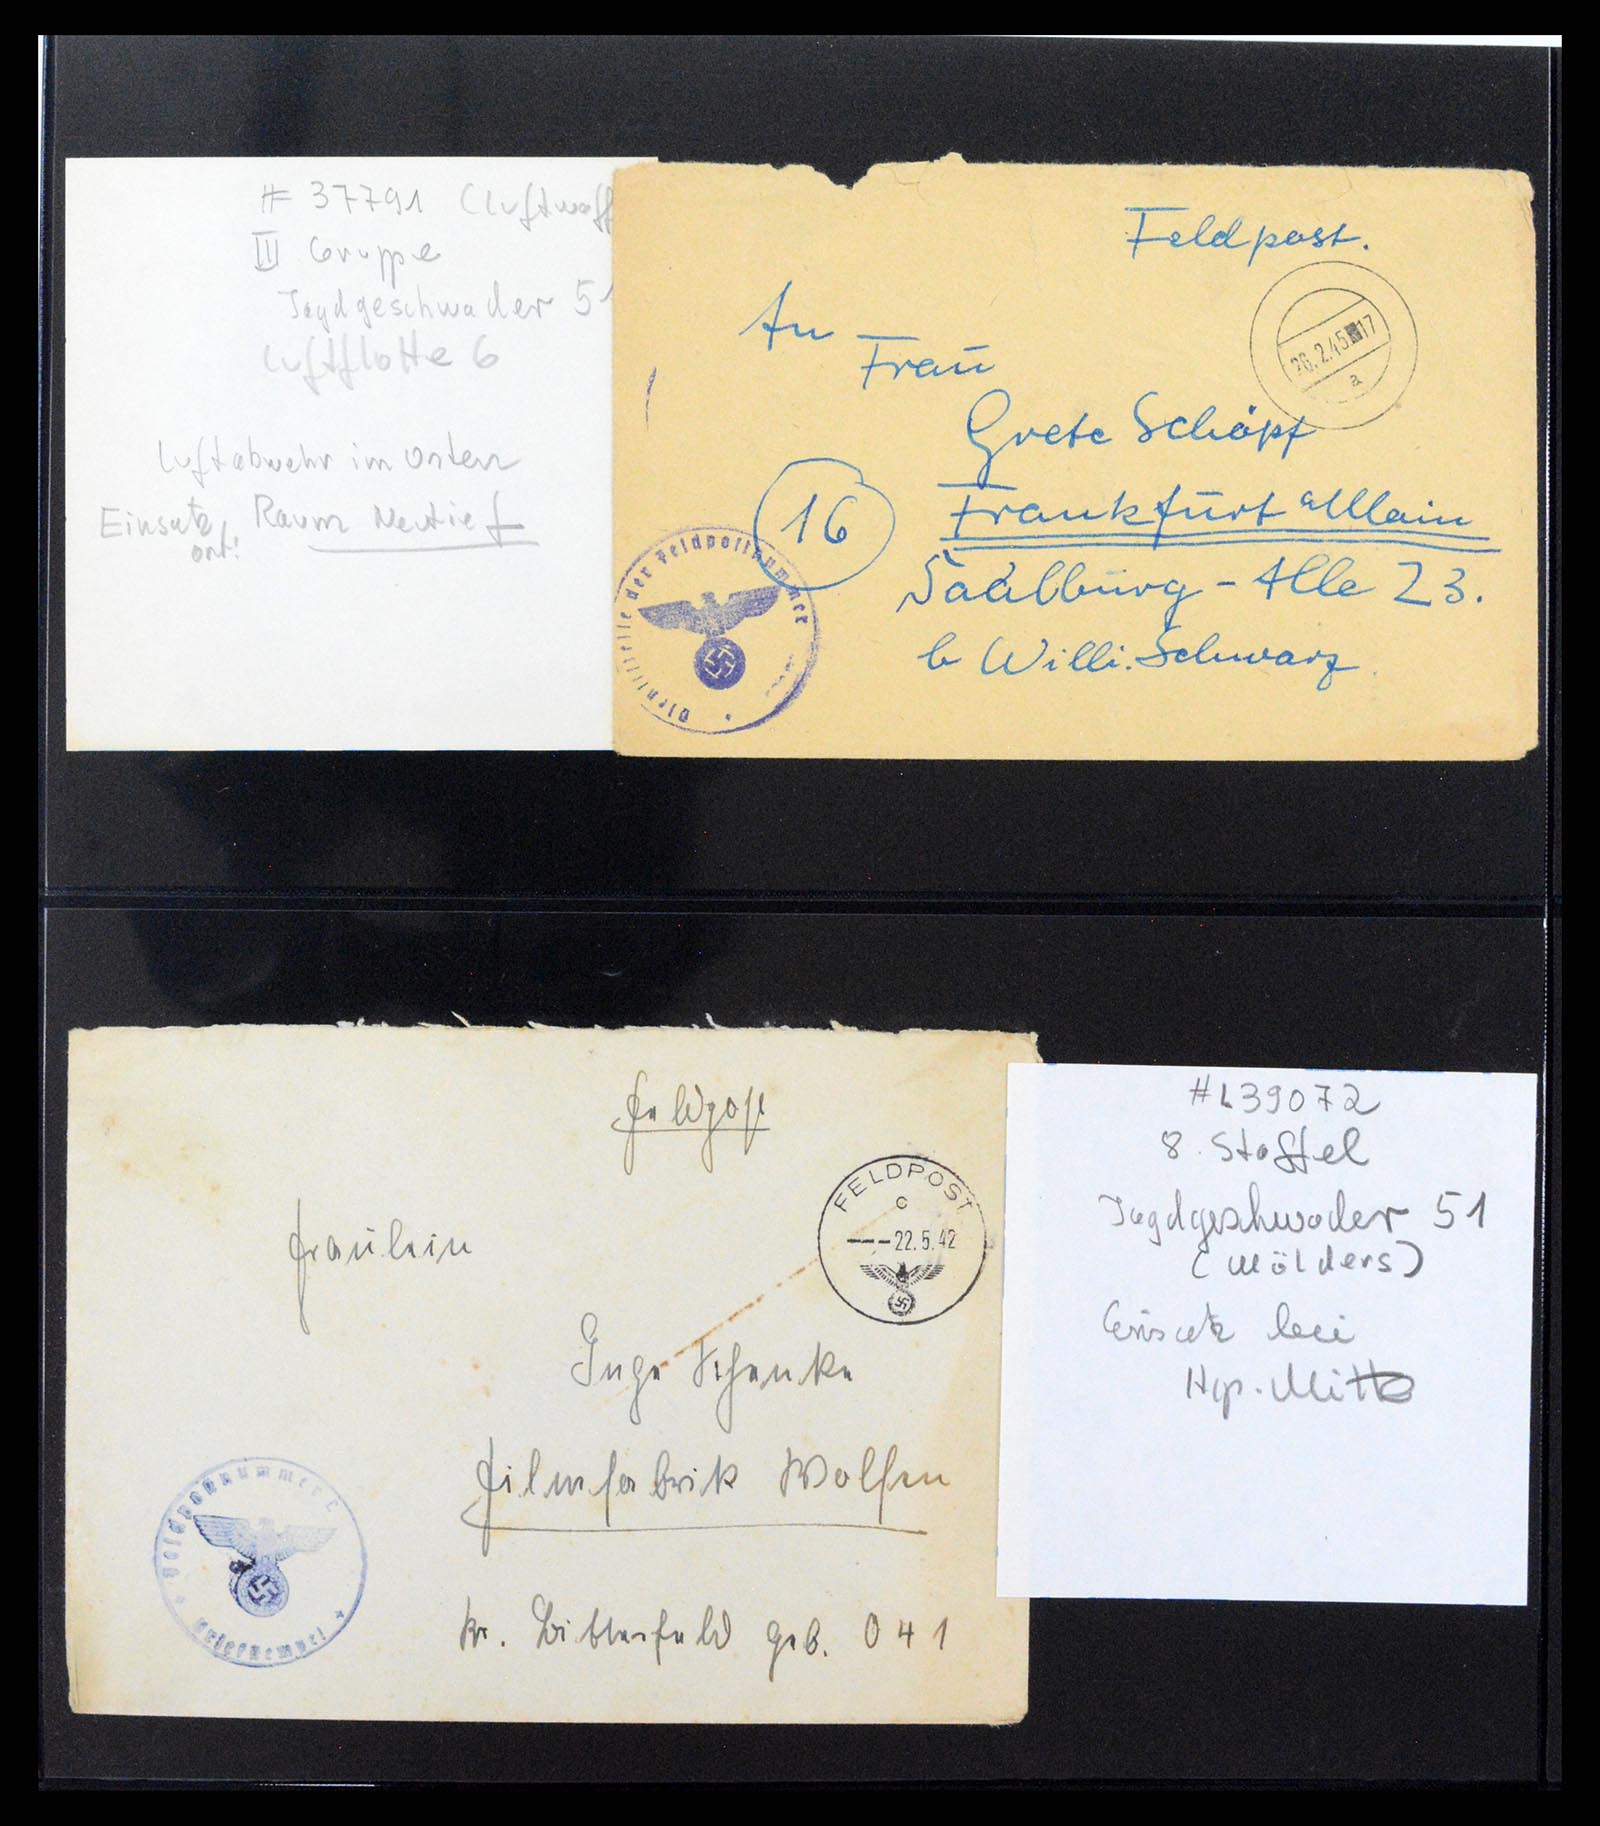 # 37791 (Luftwaff
III Gruppe
Jagdgeschwader 51
Luftflotte 6
Luftabwehr im Osten
Einsatz
ort: Raum Neutief
Feldpost.
26.2.45 17
a
An
Frau
Grete Schöpf
16
Frankfurt a Main
Saalburg - Alle 23.
b Willi. Schwarz
Dienststelle der Feldpostnummer
Feldpost
FELDPOST
c
---22.5.42
Fräulein
Inge Schenke
Filmfabrik Wolfen
Kr. Bitterfeld geb. 041
Feldpostnummer L
Briefstempel
#L39072
8. Staffel
Jagdgeschwader 51
(Mölders)
Einsatz bei
Hgr. Mitte